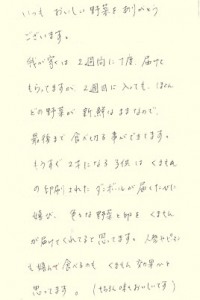 いつも おいしい野菜を ありがとう
ございます。
我が家は 2週間に1度、届けて
もらってますが、2週目に入っても、ほとん
どの野菜が 新鮮なままなので、
最後まで 食べ切る事ができてます。
もうすぐ 2才になる子供は くまさん
の印刷された ダンボールが届くたびに
喜び、 野菜と卵を くまさん
が届けてくれてると思ってます。人参やピーマン
も喜んで食べるのも くまさん 効果かと
思ってます。